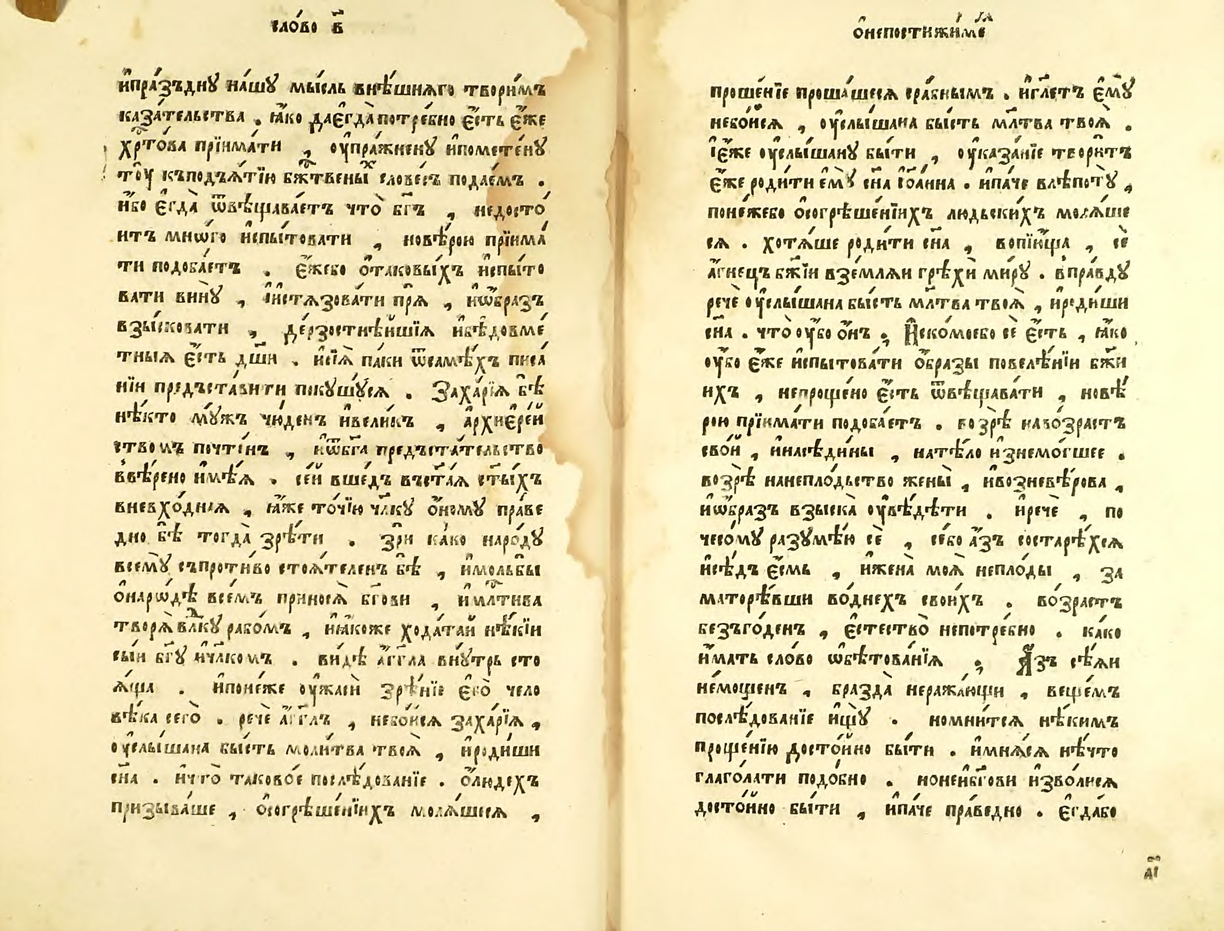 сло́во в҃
и҆пра́зъднꙋ на́шꙋ мы́сль внѣ́шнѧго твори́мъ
каза́тельства . ꙗ҆́ко даєгда̀ потре́бно є҆́сть є҆́же
хрⷭ҇то́ва прїима́ти , ᲂу҆пражне́нꙋ и҆помете́нꙋ
томꙋ̀ къподъѧ́тїю бж҃твены̑хъ слове́съ подае́мъ .
и҆́бо є҆гда̀ ѿвѣщава́етъ что̀ бг҃ъ , недосто́
итъ мно́го и҆спы́товати , новѣ́рою прїима́
ти подоба́етъ . є҆́жебо ѻ҆таковы́хъ и҆спы́то
вати винꙋ̀ , и҆и҆стѧзова́ти прѧ̀ , и҆ѡ҆́бразъ
взы́сковати , де́рзостнѣйшїѧ и҆бѣ́довме́
тныѧ є҆́сть дш҃и . и҆сїѧ̀ па́ки ѿсамѣ́хъ писа́
нїи предъста́вити покꙋшꙋ́сѧ . Заха́рїѧ бѣ̀
нѣ́кто мꙋ́жъ чю́денъ и҆вели́къ , а҆рхїере́й
ствомъ почте́нъ , и҆ѿбг҃а предъста́тельство
ввѣ́рено и҆мѣ́ѧ . се́й вше́дъ въст҃а́ѧ ст҃ы́хъ
вневхо́днаѧ , ꙗ҆́же то́чїю чл҃кꙋ ѻ҆́номꙋ пра́ве
дно бѣ̀ тогда̀ зрѣ́ти . зрѝ ка́ко наро́дꙋ
всемꙋ̀ съпроти́во стоѧ́теленъ бѣ̀ , и҆мольбы̀
ѻ҆наро́дѣ все́мъ приносѧ̀ бг҃ови , и҆мл҃тива
творѧ̀ влⷣкꙋ рабо́мъ , и҆ꙗ҆́коже хода́тай нѣ́кїи
сы́и бг҃ꙋ и҆чл҃комъ . ви́дѣ а҆́гг҃ла внꙋ́трь сто
ѧ́ща . и҆поне́же ᲂу҆жасѝ зрѣ́нїе є҆го̀ чело
вѣ́ка сего̀ . речѐ а҆́гг҃лъ , небо́йсѧ заха́рїѧ ,
ᲂу҆слы́шана бы́сть моли́тва твоѧ̀ , и҆роди́ши
сн҃а . и҆что̀ таково́е послѣ́дованїе . ѻ҆лю́дехъ
призыва́ше , ѻ҆согрѣше́нїихъ молѧ́шесѧ ,
ѻ҆непостижи́мѣ
проше́нїе проша́шесѧ сра́бнымъ . и҆гл҃етъ є҆мꙋ̀
небо́исѧ , ᲂу҆слы́шана бы́сть мл҃тва твоѧ̀ .
і҆є҆́же ᲂу҆слы́шанꙋ бы́ти , ᲂу҆каза́нїе твори́тъ
є҆́же роди́ти є҆мꙋ̀ сн҃а і҆ѡа́нна . и҆па́че влѣ́потꙋ ,
поне́жебо ѻ҆согрѣше́нїихъ лю́дьскихъ молѧ́ше
сѧ . хотѧ́ше роди́ти сн҃а , вопїю́ща , сѐ
а҆́гнецъ бж҃їи взе́млѧи грѣхѝ ми́рꙋ . впра́вдꙋ
речѐ ᲂу҆слы́шана бы́сть мл҃тва твоѧ̀ , и҆роди́ши
сн҃а . что̀ ᲂу҆́бо ѻ҆́нъ ; И҆ско́моебо сѐ є҆́сть , ꙗ҆́ко
ᲂу҆́бо є҆́же и҆спытова́ти ѻ҆́бразы повелѣ́нїи бж҃и
ихъ , непроще́но є҆́сть ѿвѣщава́ти , новѣ́
рою прїима́ти подоба́етъ . возрѣ̀ наво́зрастъ
сво́й , и҆насѣди́ны , натѣ́ло и҆знемо́гшее .
возрѣ̀ нанепло́дьство жены̀ , и҆возневѣ́рова ,
и҆ѡ҆́бразъ взы́ска ᲂу҆вѣ́дѣти . и҆речѐ , по
чесомꙋ̀ разꙋмѣ́ю сѐ , се́бо а҆́зъ состарѣ́хсѧ
и҆сѣ́дъ є҆́смь , и҆жена̀ моѧ̀ непло́ды , за
маторѣ́вши водне́хъ свои́хъ . во́зрастъ
безъго́денъ , є҆стество̀ непотре́бно . ка́ко
и҆́мать сло́во ѡ҆бѣтова́нїѧ ; А҆́зъ сѣ́ѧи
не́мощенъ , бразда̀ неражда́ющи , веще́мъ
послѣ́дованїе и҆щꙋ̀ . номни́тсѧ нѣ́кимъ
проще́нїю досто́йно бы́ти . и҆мнѧ́сѧ нѣ́что
глаго́лати подо́бно . нонеи҆бг҃ови и҆зво́лисѧ
досто́йно бы́ти , и҆па́че пра́ведно . є҆гда́бо
д҃і